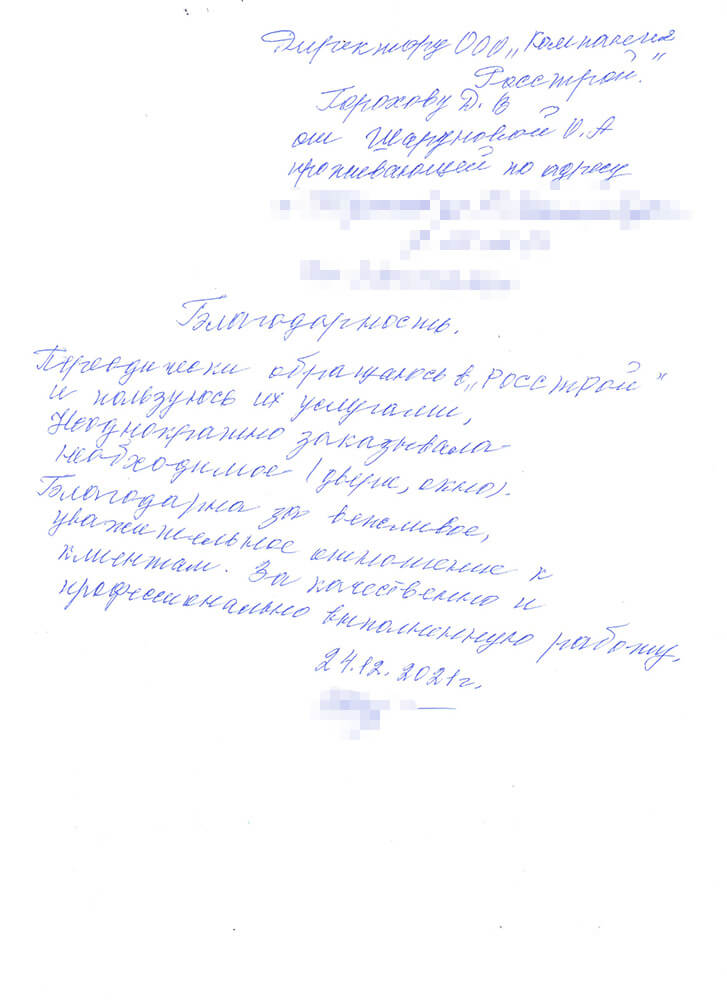 Директору ООО „Компания
Росстрой."
Горохову Д. В
от Шардуновой О. А
проживающей по адресу
Благодарность.
Периодически обращаюсь в „РОССТРОЙ"
и пользуюсь их услугами,
Неоднократно заказывала
необходимое (двери, окно).
Благодарна за вежливое,
уважительное отношение к
клиентам. За качественно и
профессионально выполненную работу.
24.12.2021г.